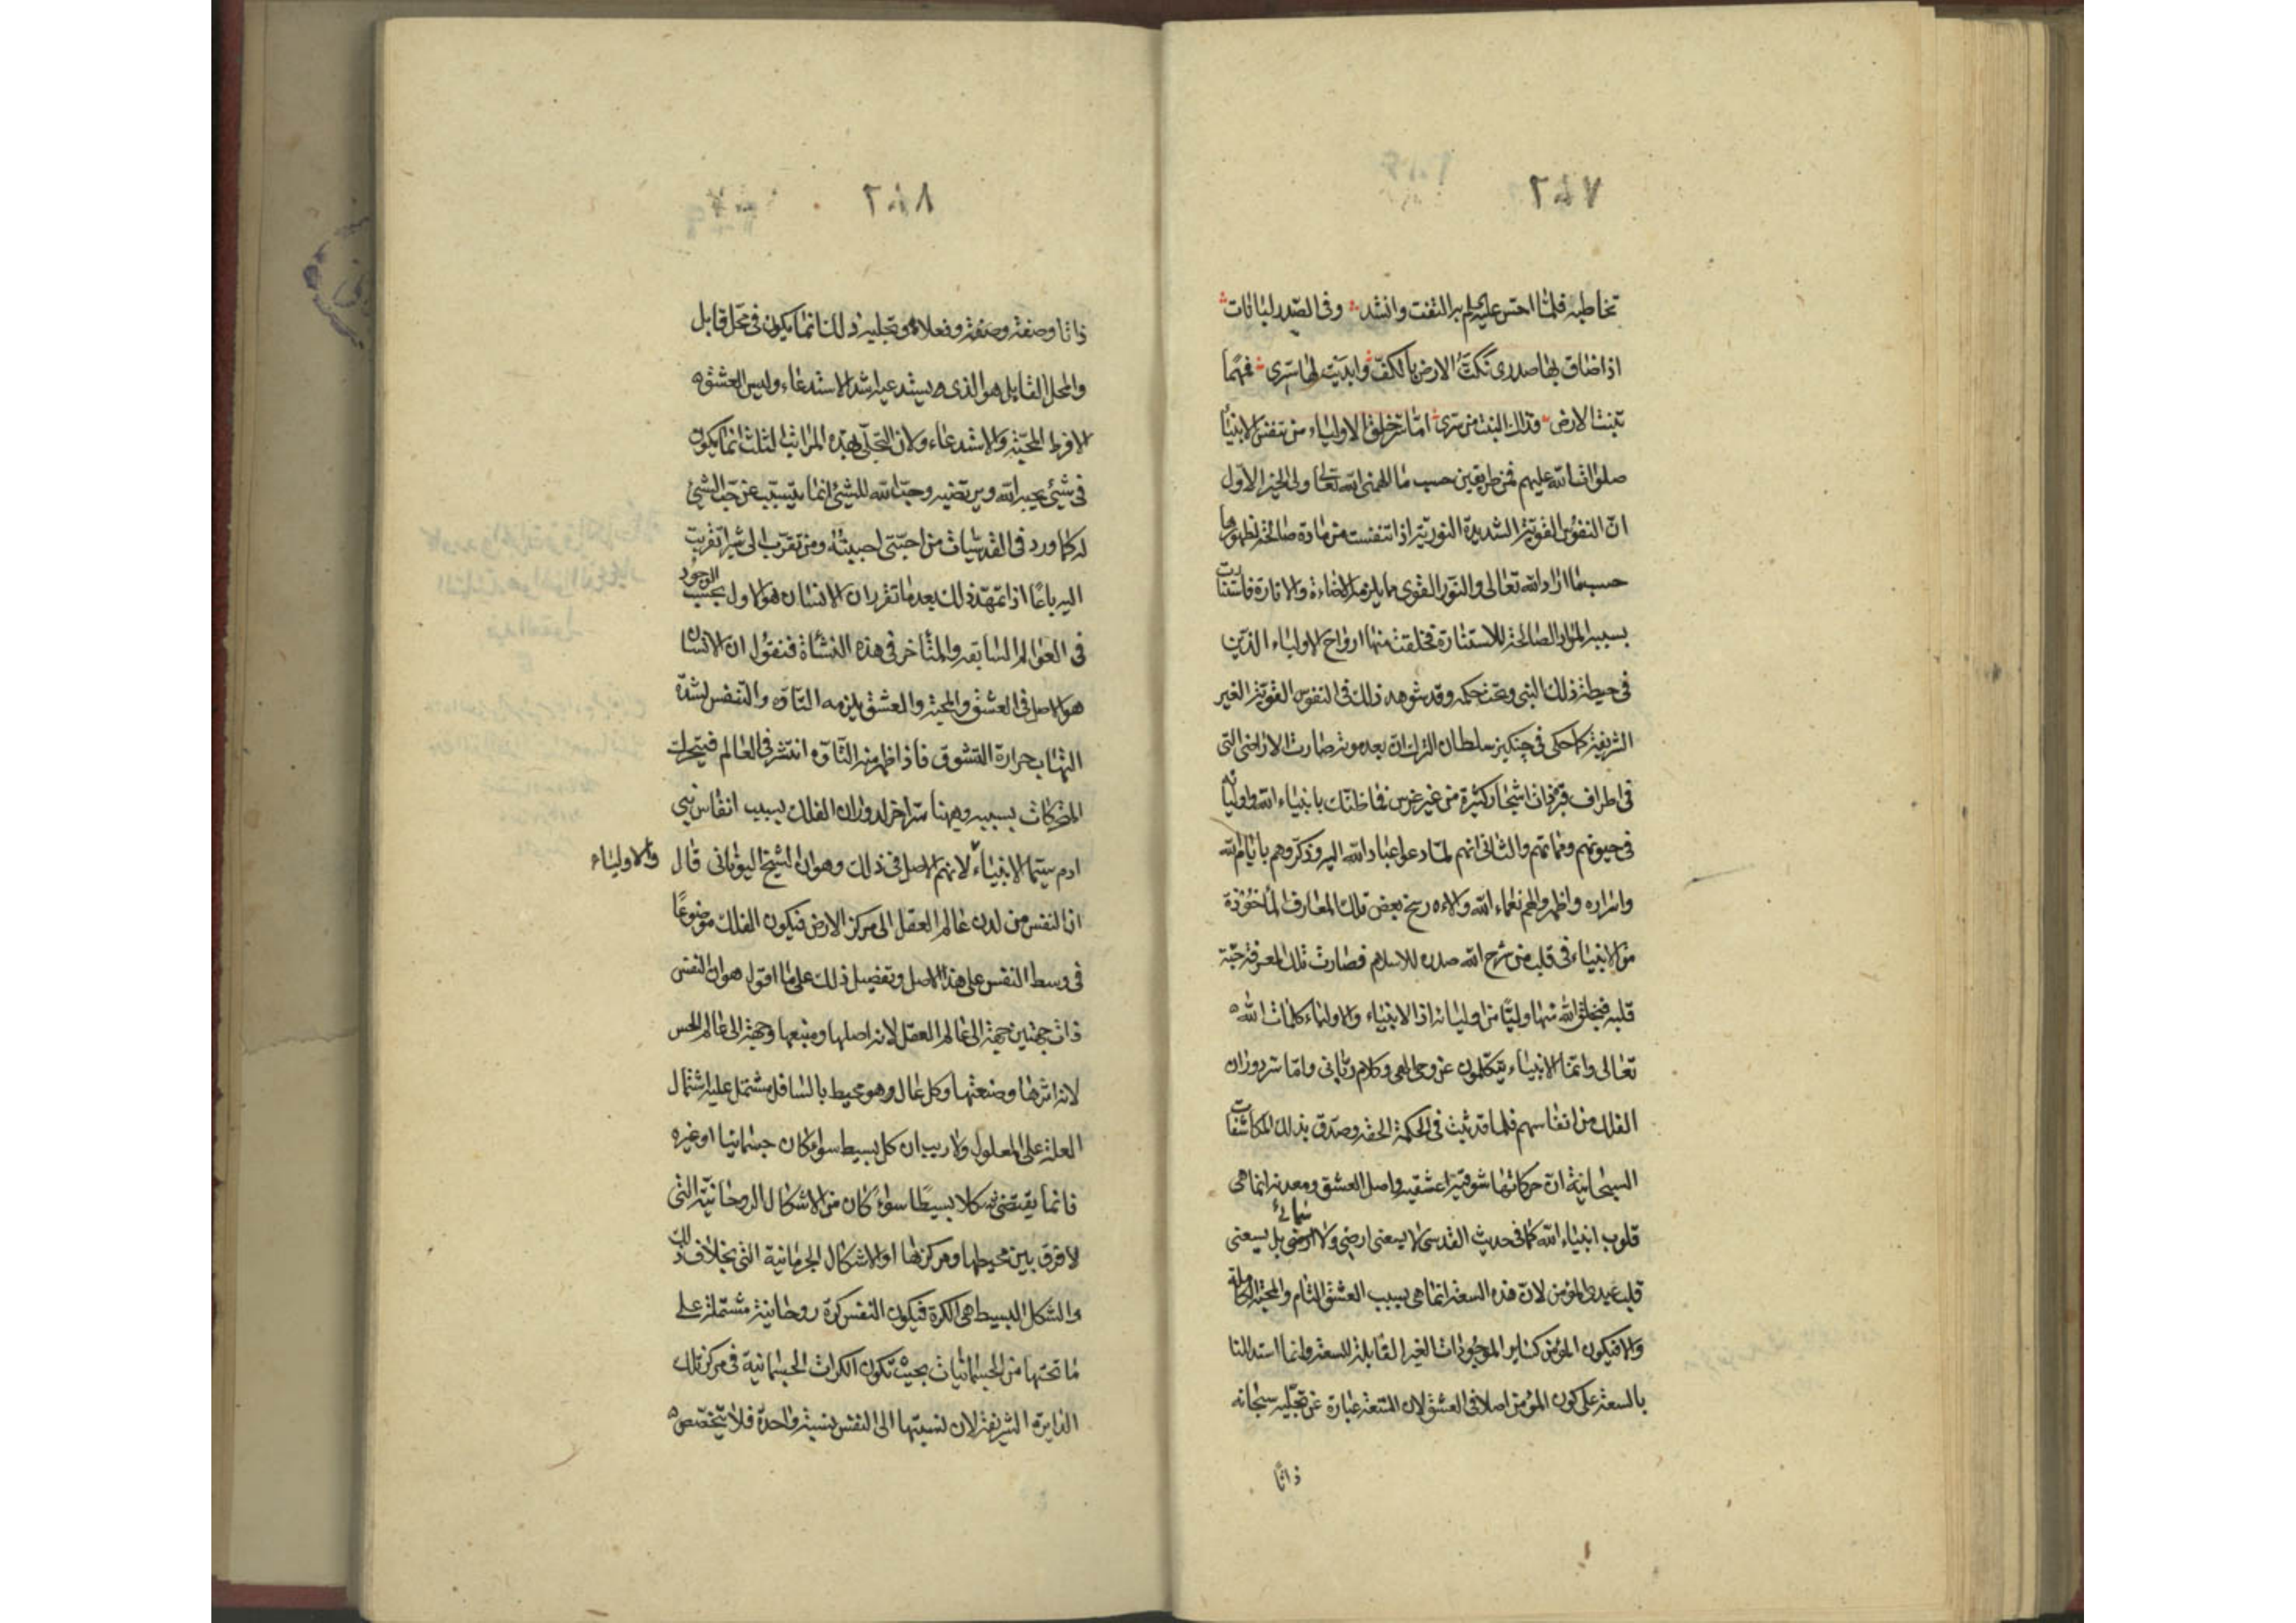 تخاطبه فلما احس عليه لم بر التفت وانشد وفى الصدر لبانات
اذا ضاق بها صدرى نكتّ الارض بالكفّ وابديت لها سرى فمهما
تنبت الارض فذاك النبت من سرى امّا سرّ خلق الاولياء من تنفس الانبيا
صلوات الله عليهم فمن طريقين حسب ما الهمنى الله تعالى ولى الخير الاول
انّ النفوس القوية الشديدة النورية اذا تنفست من مادة صالحة لظهورها
حسبما اراد الله تعالى والنور القوى مما يلزمه الاضاءة والانارة فاستنارت
بسببه المواد الصالحة للاستنارة فخلقت منها ارواح الاولياء الذين
فى حيطة ذلك النبى وتحت حكمه وقد شوهد ذلك فى النفوس القوية الغير
الشريفة كما حكى فى چنكيز سلطان الترك انّ بعد موته صارت الاراضى التى
فى اطراف قبره ذات اشجار كثيرة من غير غرس فما ظنّك بانبياء الله واوليائه
فى حيوتهم ومماتهم والثانى انهم لمّا دعوا عباد الله اليه وذكّروهم بايام الله
واسراره واظهروا لهم نعماء الله والاءه رسخ بعض تلك المعارف المأخوذة
من الانبياء فى قلب من شرح الله صدره للاسلام فصارت تلك المعرفة حبّة
قلبه فيخلق الله منها وليًّا من اوليائه اذ الانبياء والاولياء كلمات الله
تعالى وانما الانبياء يتكلمون عن وحى الهى وكلام ربانى وامّا سر دوران
الفلك من انفاسهم فلما قد ثبت فى الحكمة الحقه وصدّق بذلك المكاشفات
السبحانية انّ حركاتها شوقية عشقيه واصل العشق ومعدنه انما هى
قلوب انبياء الله كما فى حديث القدسى لا يسعنى ارضى ولا سمائى بل يسعنى
قلب عبدى المؤمن لانّ هذه السعة انما هى بسبب العشق التام والمحبة الكاملة
والا فيكون المؤمن كساير الموجودات الغير القابلة للسعة وانما استدللنا
بالسعة على كون المؤمن اصلا فى العشق لان السّعة عبارة عن تجلّيه سبحانه
ذاتًا
ذاتا وصفة وصفة وفعلا وتجليه ذلك انما يكون فى محل قابل
والمحل القابل هو الذى يستدعيه اشد الاستدعاء وليس العشق
الا فرط المحبّة والاستدعاء ولان التجلّى بهذه المراتب الثلث انما يكون
فى شئ يحبه الله ويرتضيه وحبّ الله للشئ انما يتسبّب عن حبّ الشئ
له كما ورد فى القدسيات من احبّنى احببته ومن تقرّب الى شبرا تقربت
اليه باعًا اذا تمهّد ذلك بعد ما تقرر ان الانسان هو الاول بحسب الوجود
فى العوالم السابقه والمتأخر فى هذه النشأة فنقول ان الانسان
هو الاصل فى العشق والمحبة والعشق يلزمه التاوّه والتنفس لشدّة
التهاب حرارة التشوق فاذا ظهر منه التّأوّه انتشر فى العالم فيتحرك
المتحركات بسببه وههنا سرّ اخر لدوران الفلك بسبب انفاس بنى
ادم سيّما الانبياء والاولياء لانهم الاصل فى ذلك وهو ان الشيخ اليونانى قال
ان النفس من لدن عالم العقل الى مركز الارض فيكون الفلك موضوعًا
فى وسط النفس على هذا الاصل وتفصيل ذلك على ما اقول هو ان النفس
ذات جهتين جهة الى عالم العقل لانه اصلها ومنبعها وجهة الى عالم الحس
لانه اثرها وصنعتها وكل عال فهو محيط بالسافل مشتمل عليه اشتمال
العلة على المعلول ولا ريب ان كل بسيط سواء كان جسمانيا او غيره
فانما يقتضى شكلا بسيطًا سواء كان من الاشكال الروحانية التى
لا فرق بين محيطها ومركزها او الاشكال الجرمانية التى بخلاف ذلك
والشكل البسيط هى الكرة فيكون النفس كرة روحانية مشتملة على
ما تحتها من الجسمانيات بحيث تكون الكرات الجسمانية فى مركز تلك
الدايرة الشريفة لان نسبتها الى النفس نسبة واحدة فلا يتخصص